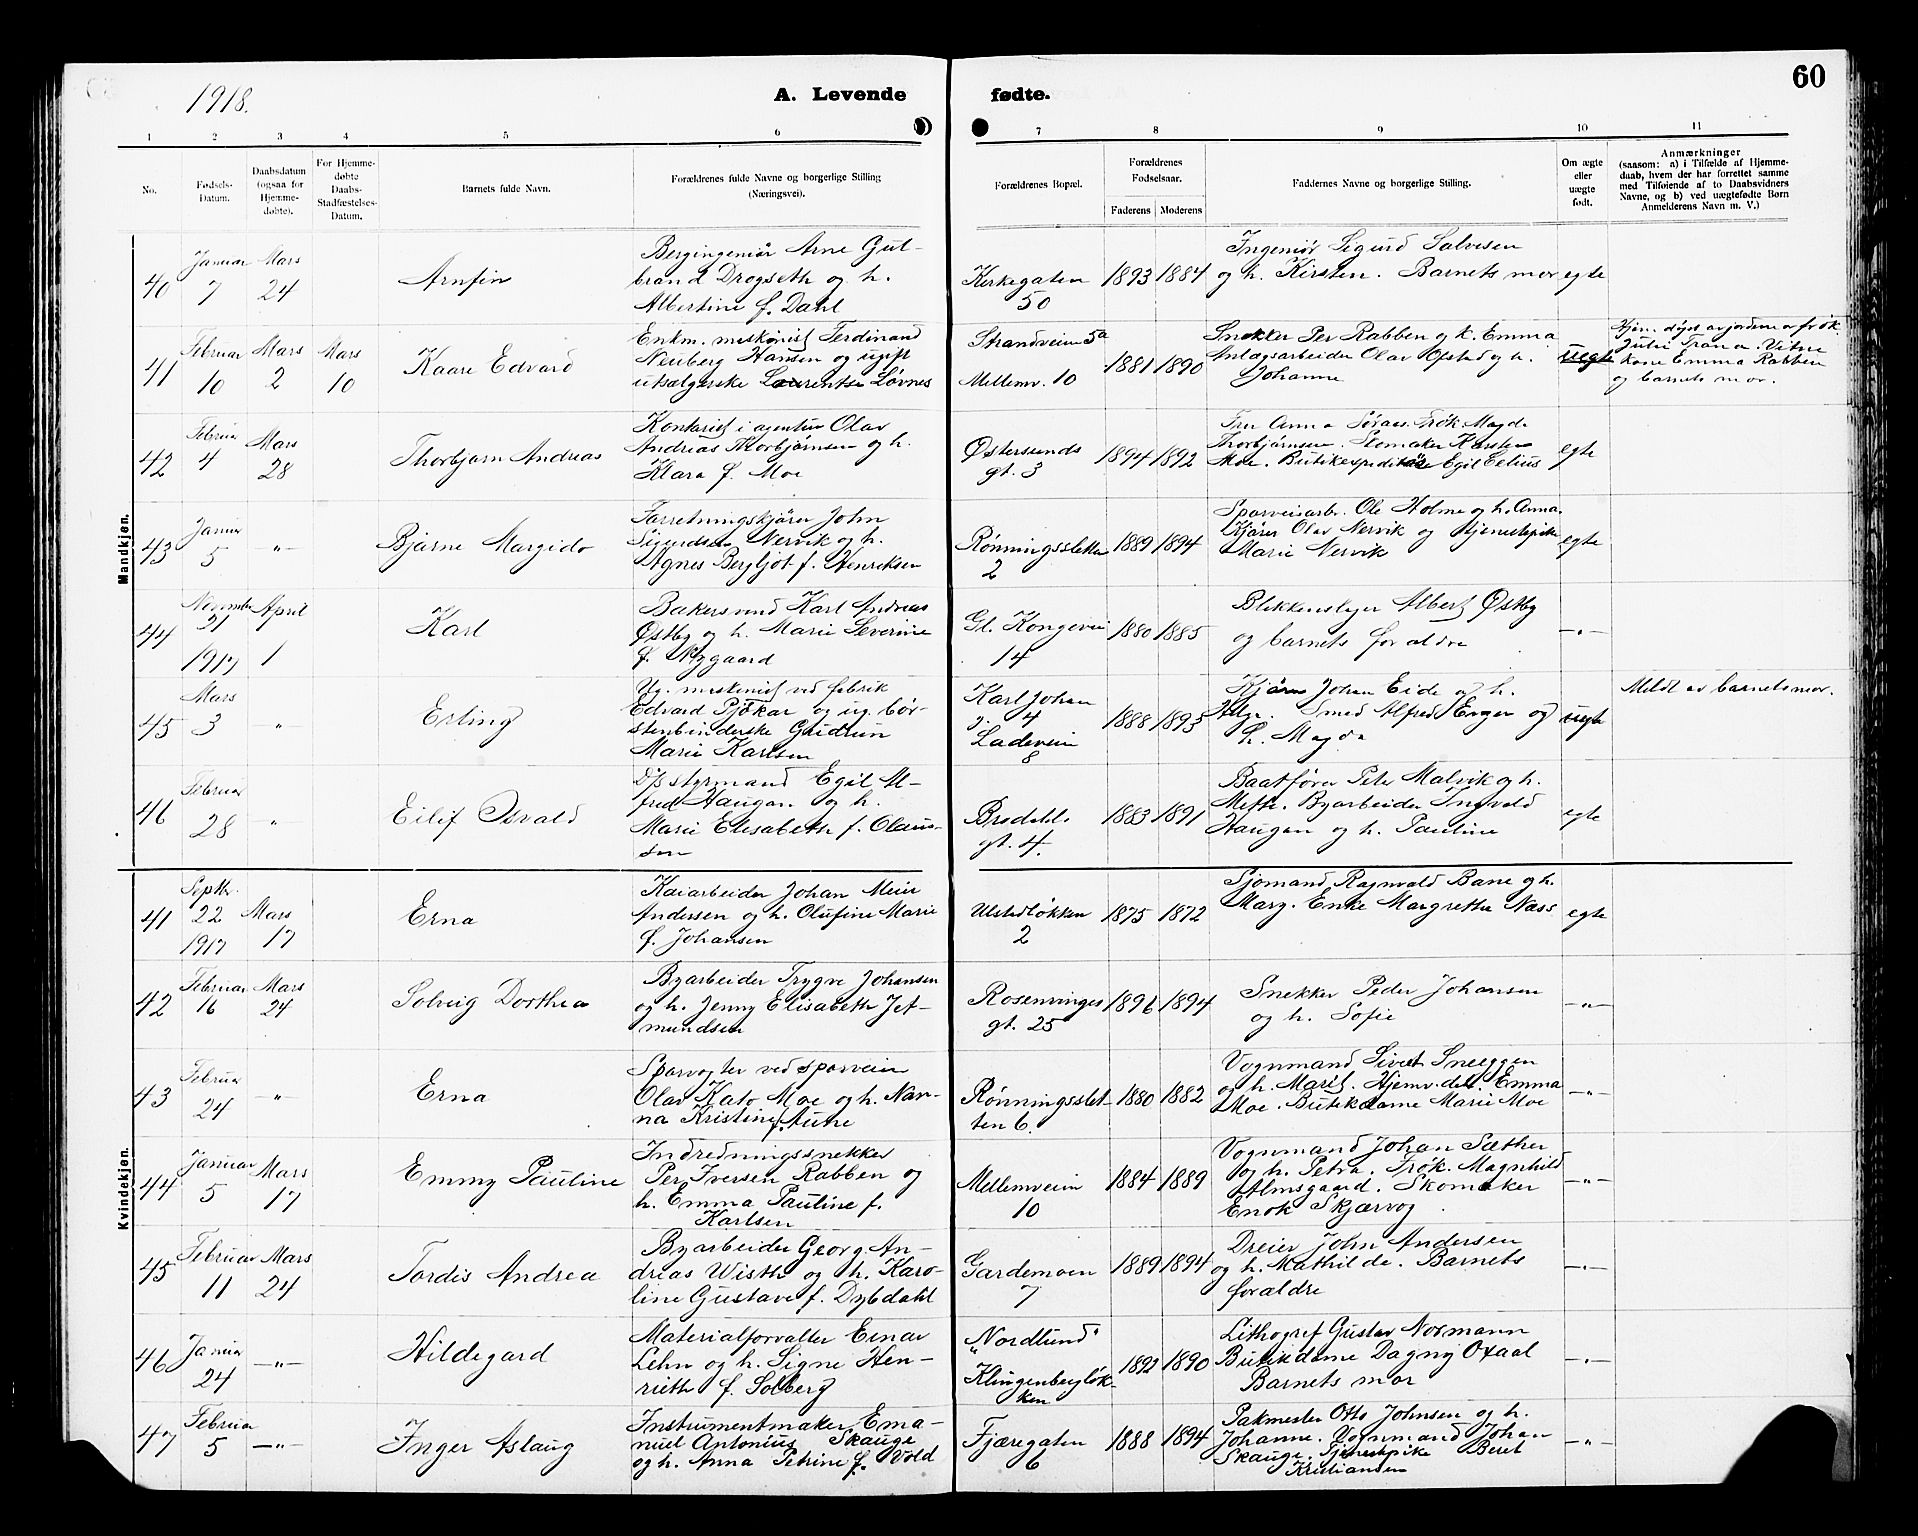 60
1918.
A. Levende fødte.
1 2 3 4 5 6 7 8 9 10 11
No.
Fødsels-
Datum.
Daabsdatum
(ogsaa for
Hjemme-
døbte).
For Hjemme-
døbte
Daabs-
Stadfæstelses-
Datum.
Barnets fulde Navn.
Forældrenes fulde Navne og borgerlige Stilling
(Næringsvei).
Forældrenes Bopæl.
Forældrenes
Fødselsaar.
Faderens Moderens
Faddernes Navne og borgerlige Stilling.
Om ægte
eller
uægte
født.
Anmærkninger
(saasom: a) i Tilfælde af Hjemme-
daab, hvem der har forrettet samme
med Tilføiende af to Daabsvidners
Navne, og b) ved uægtefødte Børn
Anmelderens Navn m. V.)
Mandkjøn.
40
Januar
7
Mars
24
Arnfin
Bergingeniør Arne Gul-
brand Drogseth og h.
Albertine f. Dahl
Kirkegaten
50
1893 1884
Ingeniør Sigurd Salvesen
og h. Kirsten. Barnets mor
egte
41
Februar
10
Mars
2
Mars
10
Kaare Edvard
Enkm. maskinist Ferdinand
Neuberg Hansen og ugift
utsalgerske Laurentse Løvnes
Strandveien 5a
Mellemv. 10
1881 1890
Snekker Per Rabben og h. Emma
Anlægsarbeider Olav Opsted og h.
Johanne
uegte
Hjem. døpt av jordmor frøk.
Juli Trana. Vitne
kone Emma Rabben
og barnets mor.
42
Februar
4
Mars
28
Thorbjørn Andreas
Kontorist i agentur Olav
Andreas Thorbjørnsen og h.
Klara f. Moe
Østersunds
gt. 3
1894 1892
Fru Anna Frøk Magda
Thorbjørnsen. Skomaker Karsten
Moe. Butikekspeditør Egil Eelius
egte
43
Januar
5
-"-
Bjarne Margido
Forretningskjører John
Sigurdsen Nervik og h.
Agnes Bergljot f. Henriksen
Rønningssletten
2
1889 1894
Sporveisarb. Ole Holme og h. Anna.
Kjører Olav Nervik og tjenestepike
Marie Nervik
egte
44
November
21
1917
April
1
Karl
Bakersvend Karl Andreas
Østby og h. Marie Severine
f. Nygaard
Gl. Kongevei
14
1880 1885
Blikkenslager Albert Østby
og barnets foraldre
-"-
45
Mars
3
"
Erling
Ug. maskinist ved fabrik
Edvard Pjøkar og ug. bør-
stenbinderske Gudrun
Marie Karlsen
Karl Johan
4
Ladeveien
8
1888 1893
Kjører Johan Eide og h.
Smed Alfred Enger og
h. Magda
uegte
Meldt av barnets mor.
46
Februar
28
-"-
Eilif Osvald
D/s styrmand Egil Al-
fred Haugan og h.
Marie Elisabeth f. Olaus-
sen
gt. 4.
1883 1891
Baatfører Peter Malvik og h.
Mette. Byarbeider Ingvald
Haugan og h. Pauline
egte
Kvindekjøn.
41
Septbr.
22
1917
Mars
17
Erna
Kaiarbeider Johan Meier
Andersen og h. Olufine Marie
f. Johansen
Ulstadløkken
2
1875 1872
Sjømand Ragnvald Bane og h.
Marg. Enke Margrethe Næss
egte
42
Februar
16
Mars
24
Solveig Dorthea
Byarbeider Trygve Johansen
og h. Jenny Elisabeth Jet-
mundsen
Rosenvinges
gt. 25
1896 1894
Snekker Peder Johansen
og h. Sofie
-"-
43
Februar
24
-"-
Erna
Sporvogter ved sporveien
Olav Kato Moe og h. Nan-
na Kristine f. Aune
Rønningsslet-
ten 6.
1880 1882
Vognmand Sivert Sneeggen
og h. Marit. Hjemv.del. Emma
Moe. Butikdame Marie Moe
-"-
44
Januar
5
Mars
17
Emmy Pauline
Indredningssnekker
Per Iversen Rabben og
h. Emma Pauline f.
Karlsen
Mellemveien
10
1884 1889
Vognmand Johan Sæther
og h. Petra. Frøk. Magnhild
Almsgaard. Skomaker
Enok Skjærvog
-"-
45
Februar
11
Mars
24
Tordis Andrea
Byarbeider Georg An-
dreas Wisth og h. Karo-
line Gustava f. Dybdahl
Gardemoen
7
1889 1894
Dreier John Andersen
og h. Mathilde. Barnets
foraldre
-"-
46
Januar
24
-"-
Hildegard
Materialforvalter Einar
Lehn og h. Signe Hen-
riette f. Solberg
"Nordlund"
Klingenbergløk-
ken
1892 1890
Lithograf Gustav Normann
Butikdame Dagny Oxaal
Barnets mor
-"-
47
Februar
5
-"-
Inger Aslaug
Instrumentmaker Ema-
nuel Antonius Skauge
og h. Anna Petrine f. Vold
Fjæregaten
6
1888 1894
Pakmester Otto Johnsen og h.
Johanne. Vognmand Johan
Skauge. Tjenestepike Beret
Kristiansen
-"-